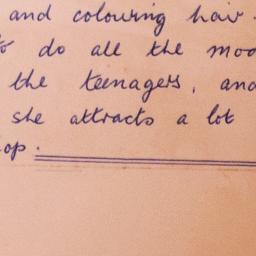 and colouring hair.
do all the
the teenagers, and
she attracts a lot